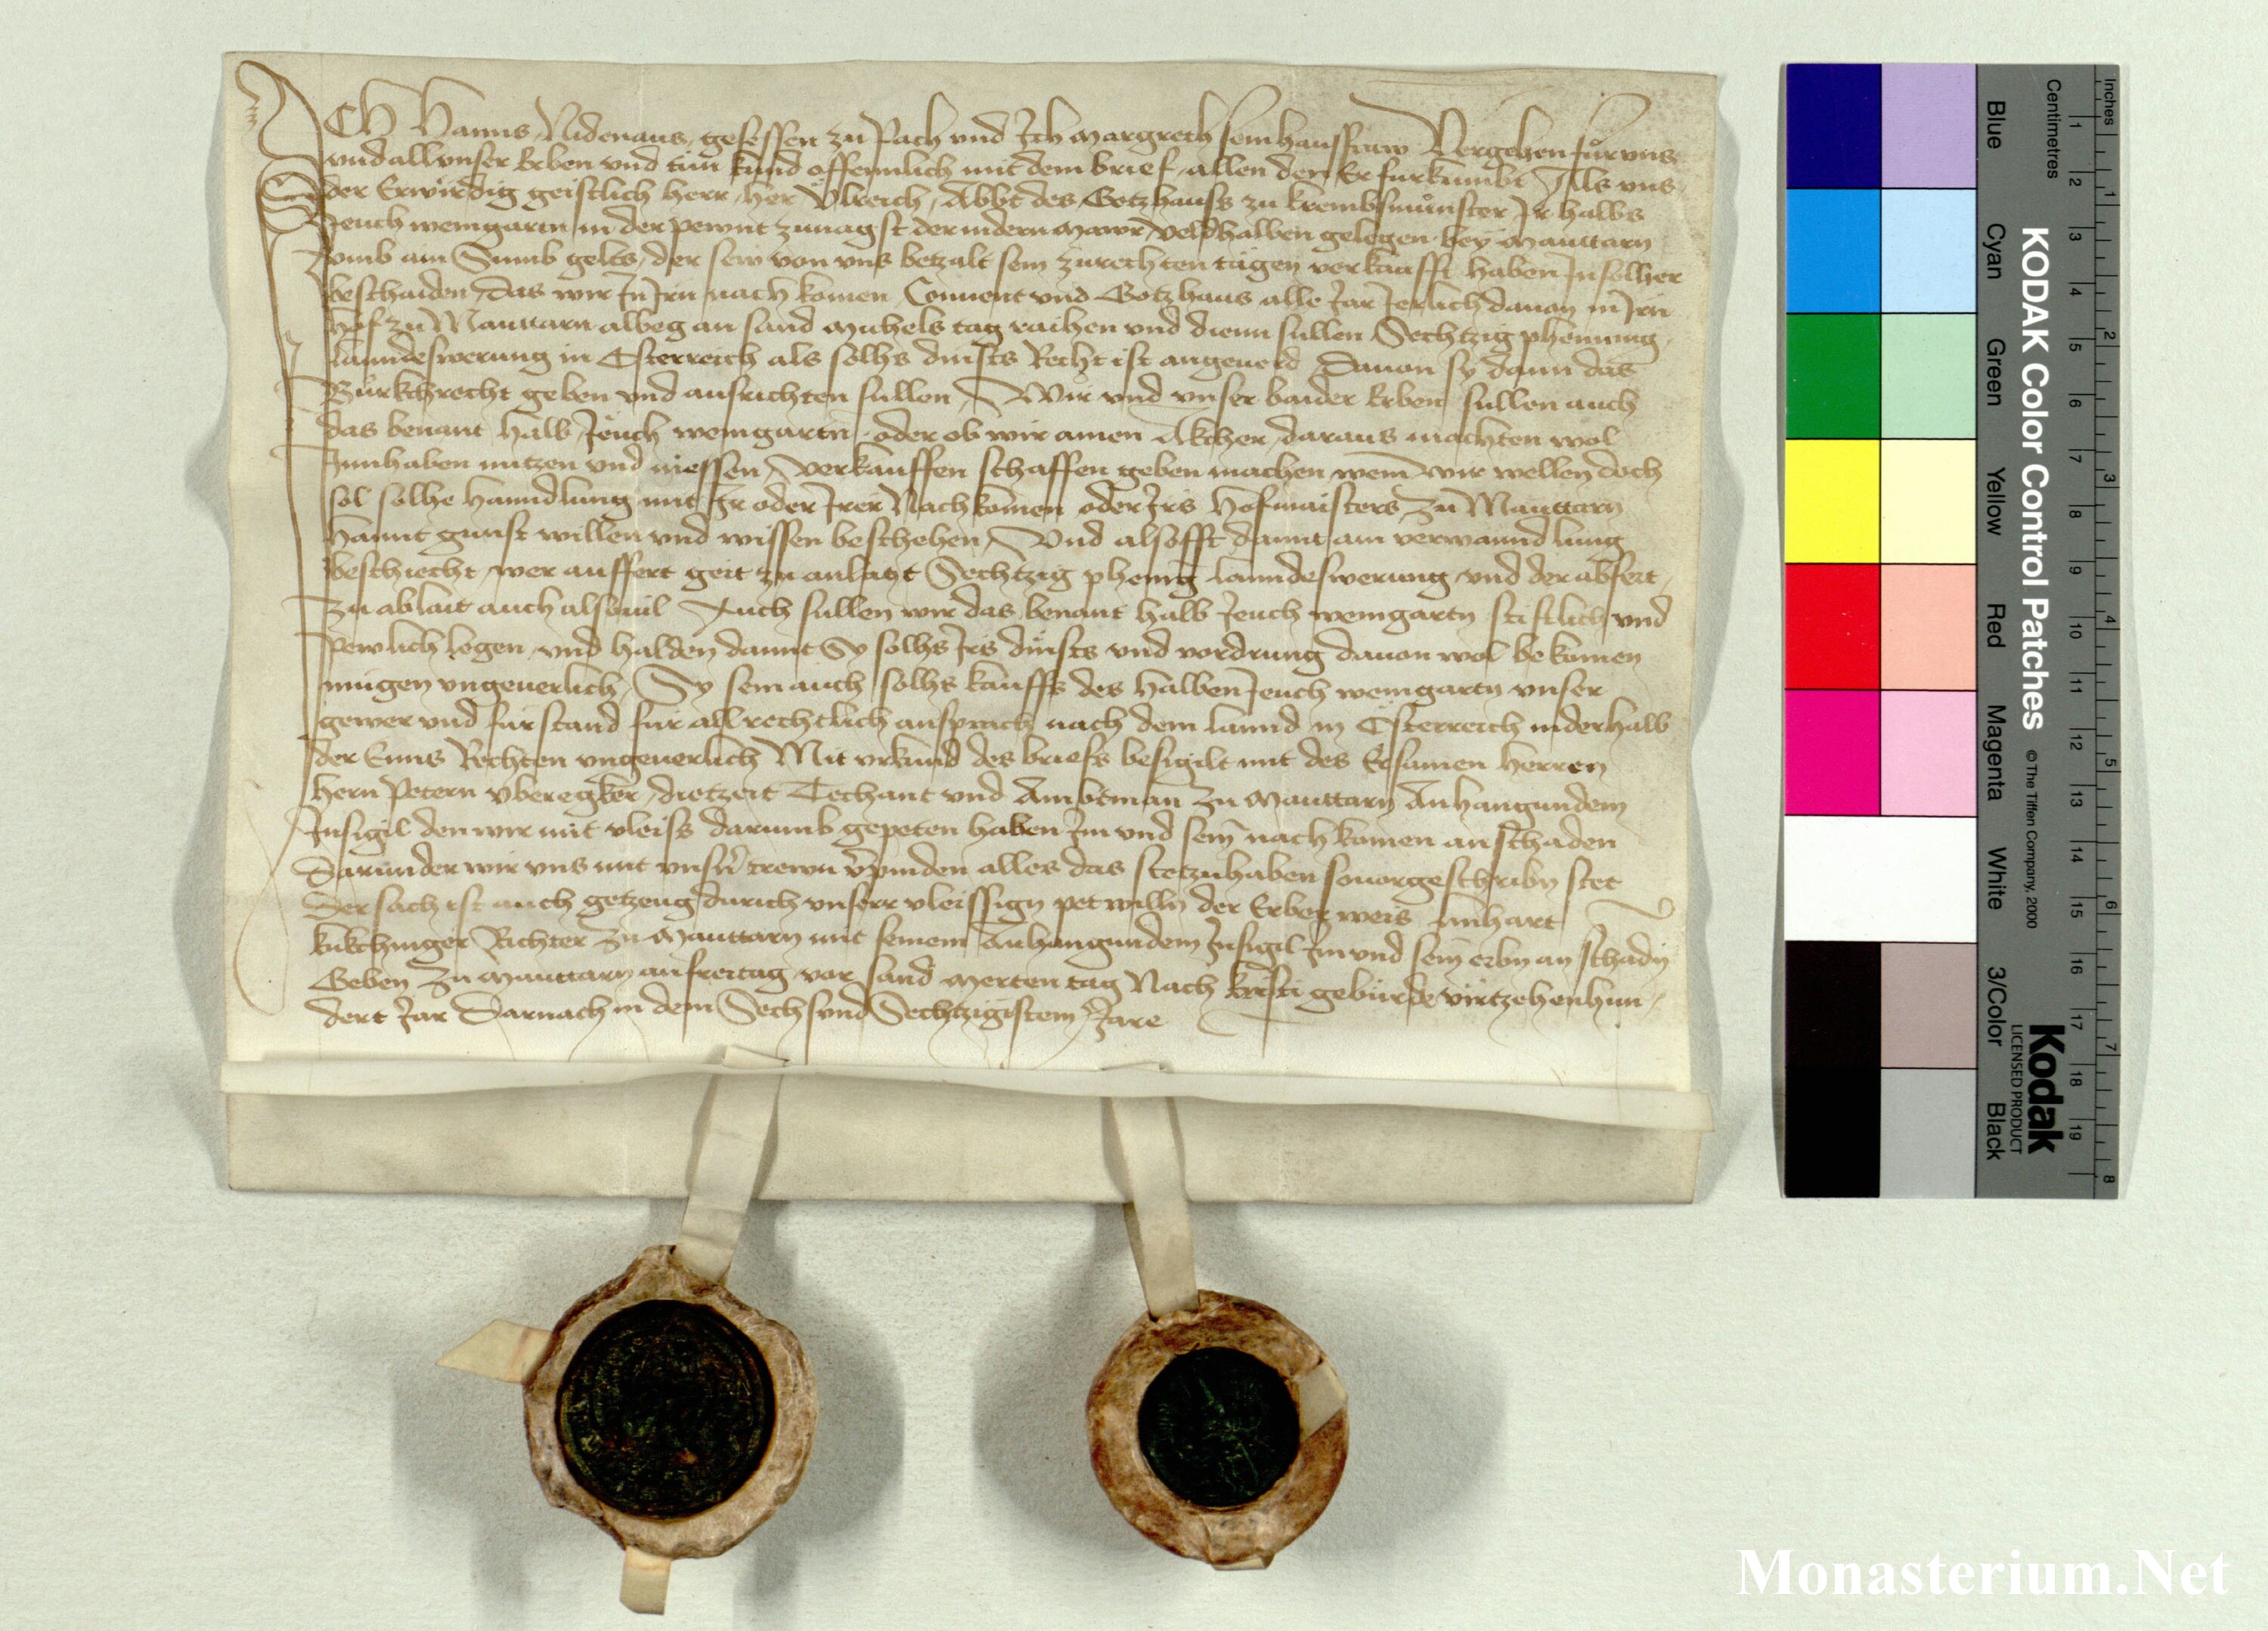 ICH Hanns Nidenaus gesessen zu Pach vnd Ich Margreth sein hausfraw Vergehen für vns
vnd all vnser Erben vnd tün kund offennlich mit dem brief allen den Er fürkumbt Als vns
der Erwirdig geistlich herr her Vlreich Abbt des Gotzhauss zu krembsmünster Jr halbs
Jeuch weingartn in der pewnt zunagst der indern Mawr veldhalben gelegen bey Mauttarn
vmb ain Summ gelts der sew von vns betzalt sein zu rechten tägen verkaufft haben In solher
beschaiden das wir In Irn nachkomen Conuent vnd Gotzhaus alle Jar Jerlich dauon in Irn
hof zu Mauttarn albeg an sand Michels tag raihen vnd dienn sullen Sechtzig phenning
lanndeswerung in Österreich als solhs dinsts Recht ist angeuerd Dauon sy dann das
Bürkchrecht geben vnd ausrichten sullen Wir vnd vnser baider Erben sullen auch
das benant halb Jeuch weingartn oder ob wir ainen Akcher daraus machten wol
Innhaben nutzen vnd niessen verkauffen schaffen geben machen wem wir wellen doch
sol solhe hanndlung mit Ir oder Irer Nachkomen oder Irs hofmaisters zu Mauttarn
hannt gunst willen vnd wissen beschehen Vnd alsofft damit ain verwanndlung
beschiecht wer auffert geit zu anlait Sechtzig phenig lanndeswerung vnd der abfert
zu ablait auch alsouil Auch sullen wir das benant halb Jeuch weingartn stiftlich vnd
pewlich legen vnd halden damit Sy solhs Irs dinsts vnd vordrung dauon wol bekomen
mügen vngeuerlich Sy sein auch solhs kauffs des halben Jeuch weingartn vnser
gewer vnd fürstand für all rechtlich ansprach nach dem lannd in Österreich niderhalb
der Enns Rechten vngeuerlich Mit vrkund des briefs besigilt mit des Ersamen herren
hern Petern vberegker dietzeit Techant vnd Ambtman zu Mauttarn Anhangundem
Insigil den wir mit vleiss darumb gepeten haben Im vnd sein nachkomen an schaden
Darunder wir vns mit vnsern trewn verpinden alles das stetzuhaben so uorgeschribn stet
Der sach ist auch getzeug durich vnserr vleissign pet willn der Erber weis linhart
kukchinger Richter zu Mauttarn mit seinem Anhangundem Insigil Im vnd sein erbn an schadn
Geben zu Mauttarn an freitag vor sand Merten tag Nach kristi gebürde virtzehenhun
dert Jar Darnach in dem Sechsvnd Sechtzigistem Jare
KODAK Color Control Patches © The Tiffen Company, 2000
Kodak
LICENSED PRODUCT
Blue
Cyan
Green
Yellow
Red
Magenta
White
3/Color
Black
Centimetres
1 2 3 4 5 6 7 8 9 10 11 12 13 14 15 16 17 18 19
Inches
1 2 3 4 5 6 7 8
Monasterium.Net